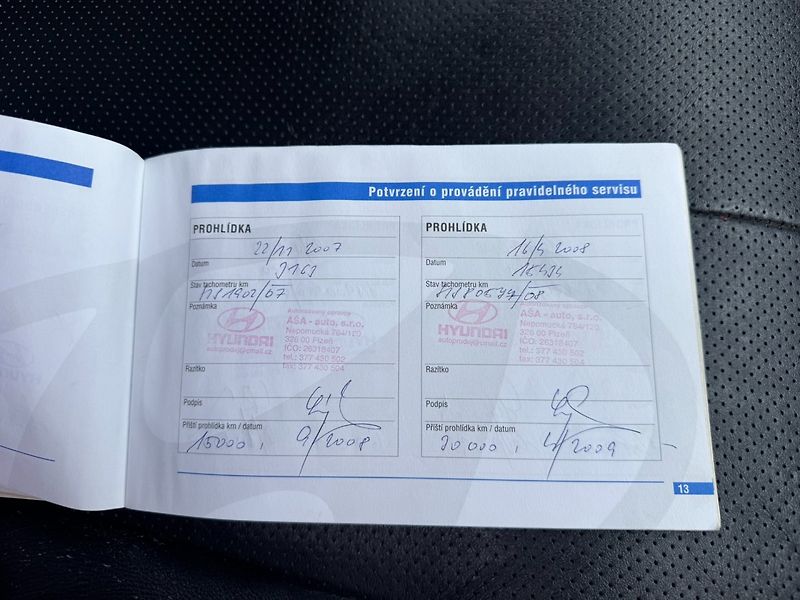 Potvrzení o provádění pravidelného servisu
PROHLÍDKA
22/11 2007
Datum
9163
Stav tachometru km
/07
Poznámka
Autorizovaný servis
AŠA - auto, s.r.o.
HYUNDAI
Nepomucká 764/120
326 00 Plzeň
IČO: 26318407
autoprodej@cmail.cz
tel.: 377 430 502
fax: 377 430 504
Razítko
Podpis
Příští prohlídka km / datum
15000, 9/2008
PROHLÍDKA
16/4 2008
Datum
Stav tachometru km
/08
Poznámka
AŠA - auto, s.r.o.
HYUNDAI
Nepomucká 764/120
326 00 Plzeň
IČO: 26318407
autoprodej@cmail.cz
tel.: 377 430 502
fax: 377 430 504
Razítko
Podpis
Příští prohlídka km / datum
30 000, 4/2009
13